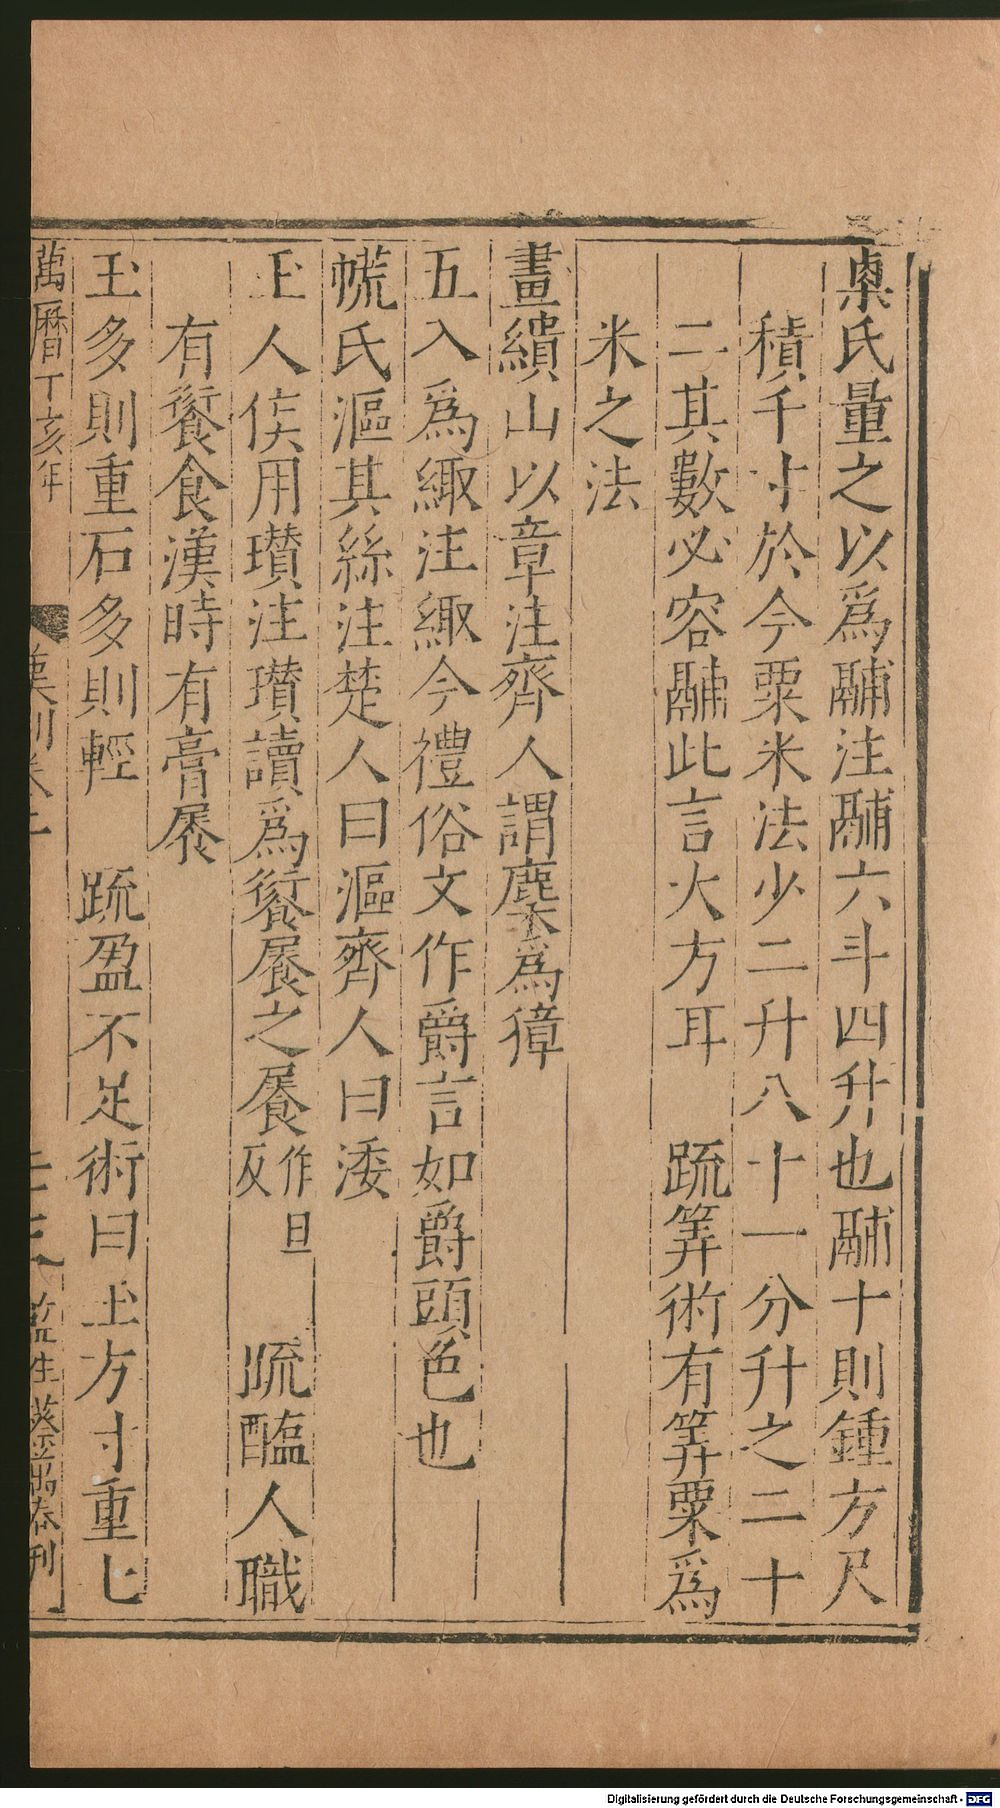 㮚氏量之以爲鬴注鬴六斗四升也鬴十則鍾方尺
積千寸於今粟米法少二升八十一分升之二十
二其數必容鬴此言大方耳　䟽筭術有筭粟爲
米之法
畫繢山以章注齊人謂麇爲獐
五入爲緅注緅今禮俗文作爵言如爵頭色也
㡛氏漚其絲注楚人曰漚齊人曰涹
玉人矦用瓚注瓚讀爲䬪𡳐之𡳐作旦反　䟽醢人職
有䬪食漢時有膏𡳐
玉多則重石多則輕　䟽盈不足術曰玉方寸重七
萬曆丁亥年
監生蔡 刊
Digitalisierung gefördert durch die Deutsche Forschungsgemeinschaft - DFG